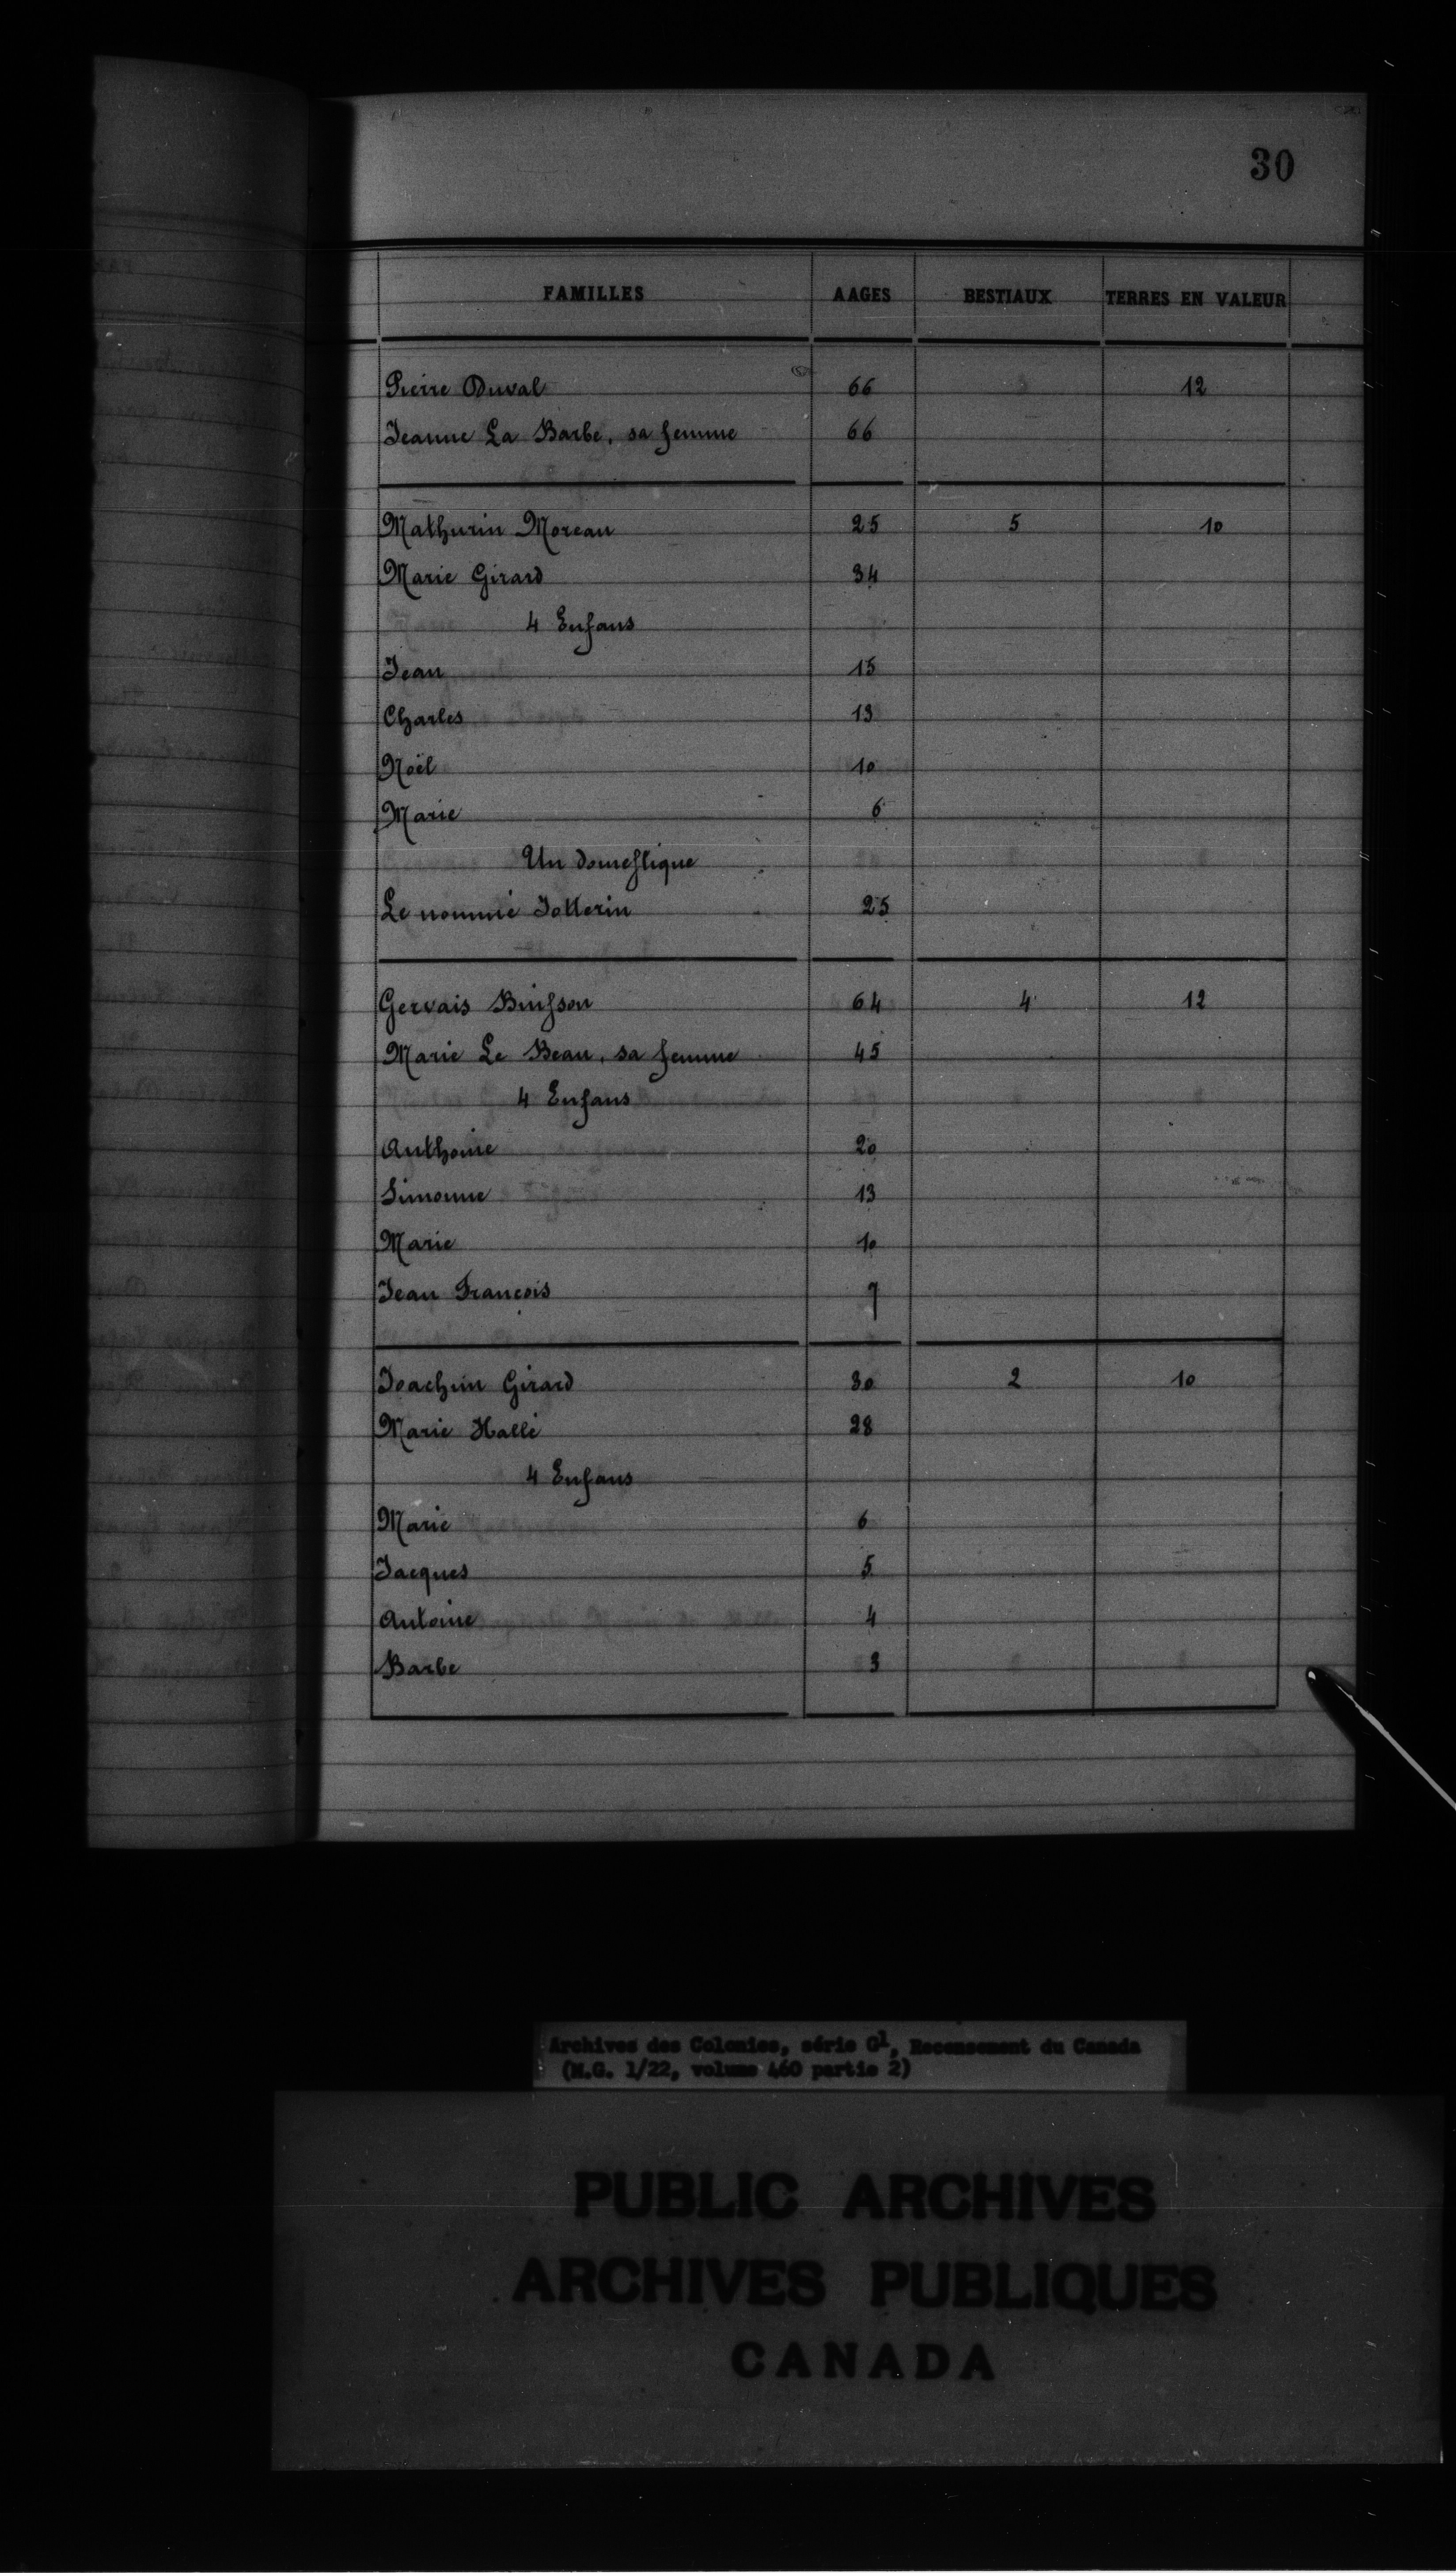 30
FAMILLES AAGES BESTIAUX TERRES EN VALEUR
Pierre Duval 66 12
Jeanne La Barbe, sa femme 66
Mathurin Moreau 25 5 10
Marie Girard 34
4 Enfans
Jean 15
Charles 13
Noël 10
Marie 6
Un domestique
Le nommé Jolterin 25
Gervais Buisson 64 4 12
Marie Le Beau, sa femme 45
4 Enfans
Anthoine 20
Simonne 13
Marie 10
Jean François 7
Joachim Girard 30 2 10
Marie Hallé 28
4 Enfans
Marie 6
Jacques 5
Antoine 4
Barbe 3
Archives des Colonies, série G1, Recensement du Canada
(M.G. 1/22, volume 460 partie 2)
PUBLIC ARCHIVES
ARCHIVES PUBLIQUES
CANADA